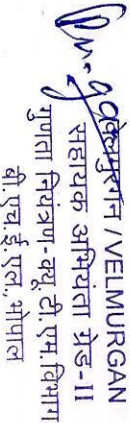 वेलमुरुगन / VELMURGAN
सहायक अभियंता ग्रेड-II
गुणता नियंत्रण-क्यू.टी.एम. विभाग
बी.एच.ई.एल., भोपाल